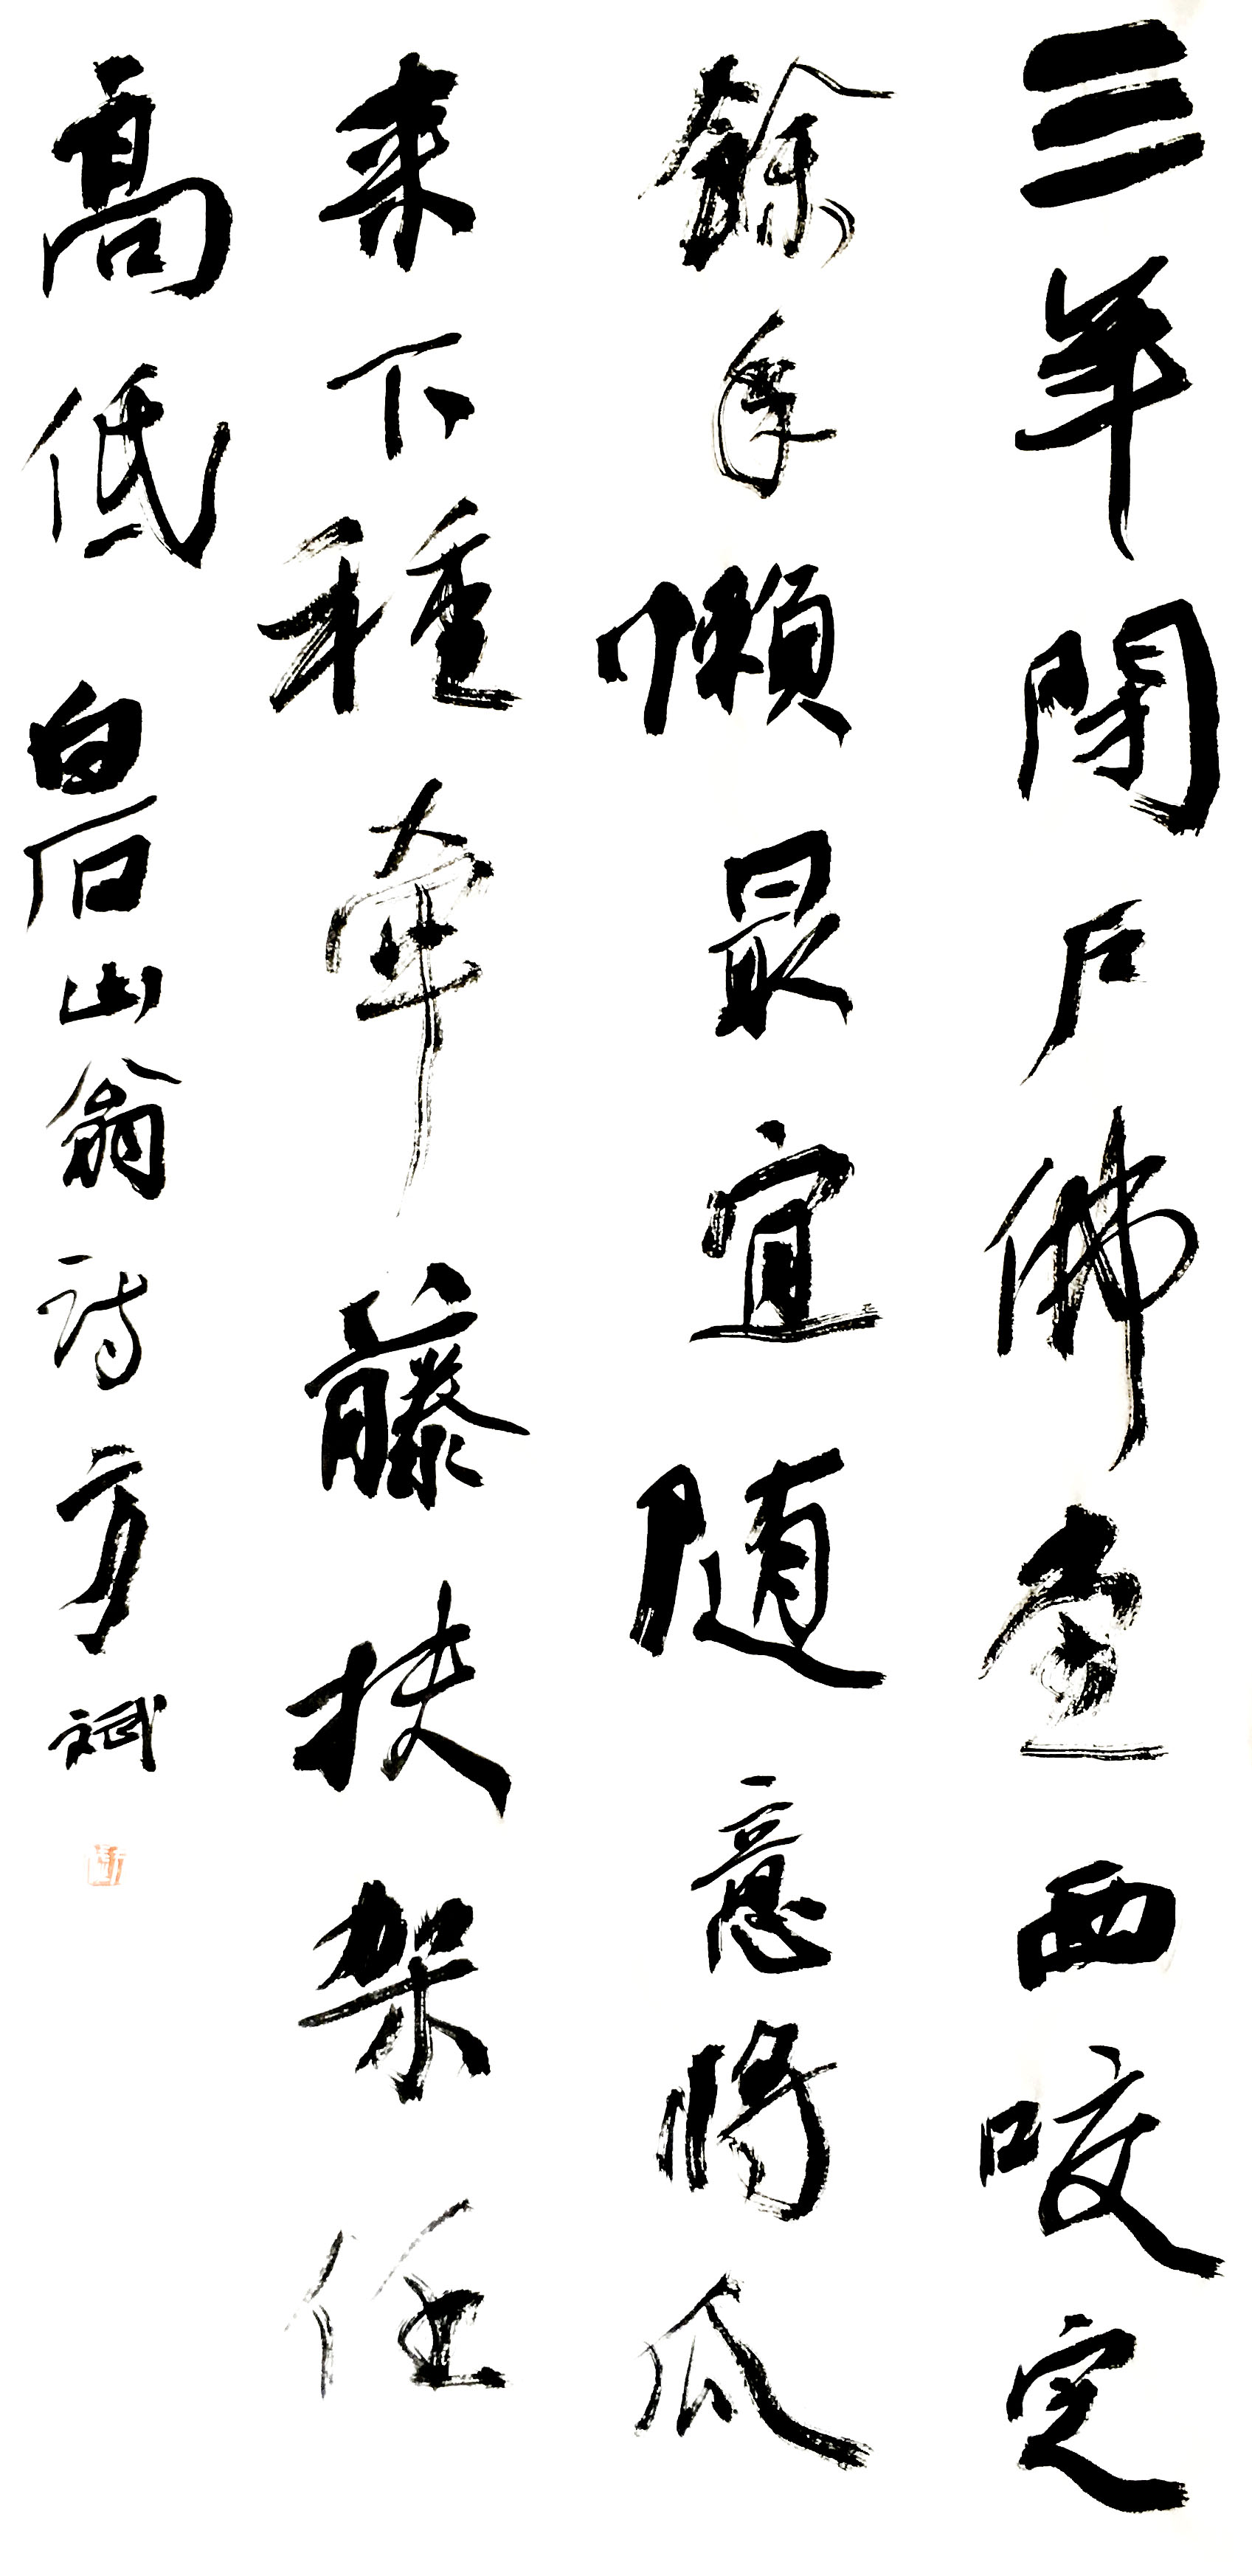 三年閉戶佛堂西咬定
餘年懶最宜随意將瓜
来下種牽藤扶架任
高低 白石山翁詩 方斌